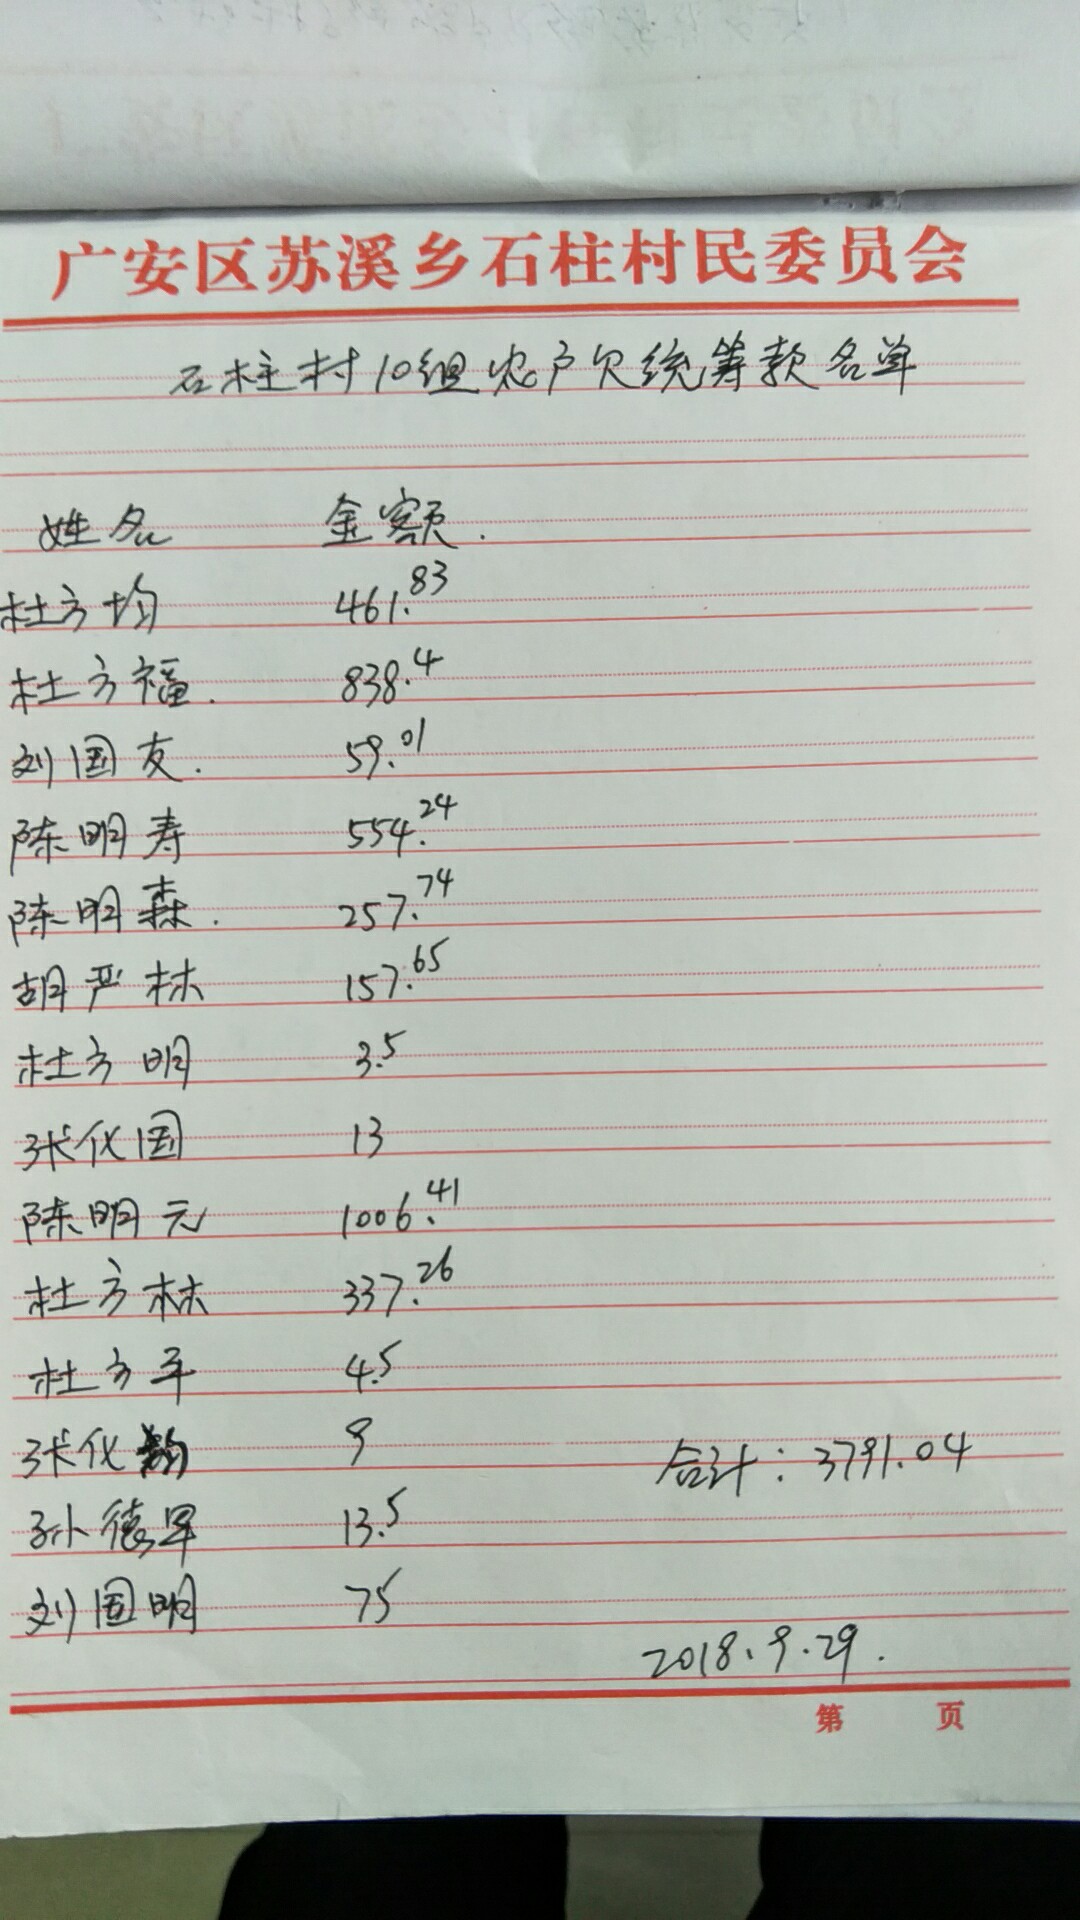 广安区苏溪乡石柱村民委员会
石柱村10组农户欠统筹款名单
姓名 金额.
杜方均 461.83
杜方福. 838.4
刘国友. 59.01
陈明寿 554.24
陈明森. 257.74
胡严林 157.65
杜方明 3.5
张化国 13
陈明元 1006.41
杜方林 337.26
杜方平 4.5
张化 9 合计:3791.04
孙德军 13.5
刘国明 75
2018.9.29.
第 页